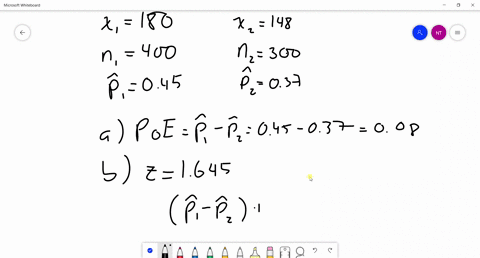 Microsoft Whiteboard
x₁ = 180 x₂ = 148
n₁ = 400 n₂ = 300
p̂₁ = 0.45 p̂₂ = 0.37
NT
a) PoE = p̂₁ - p̂₂ = 0.45 - 0.37 = 0.08
b) z = 1.645
(p̂₁ - p̂₂)